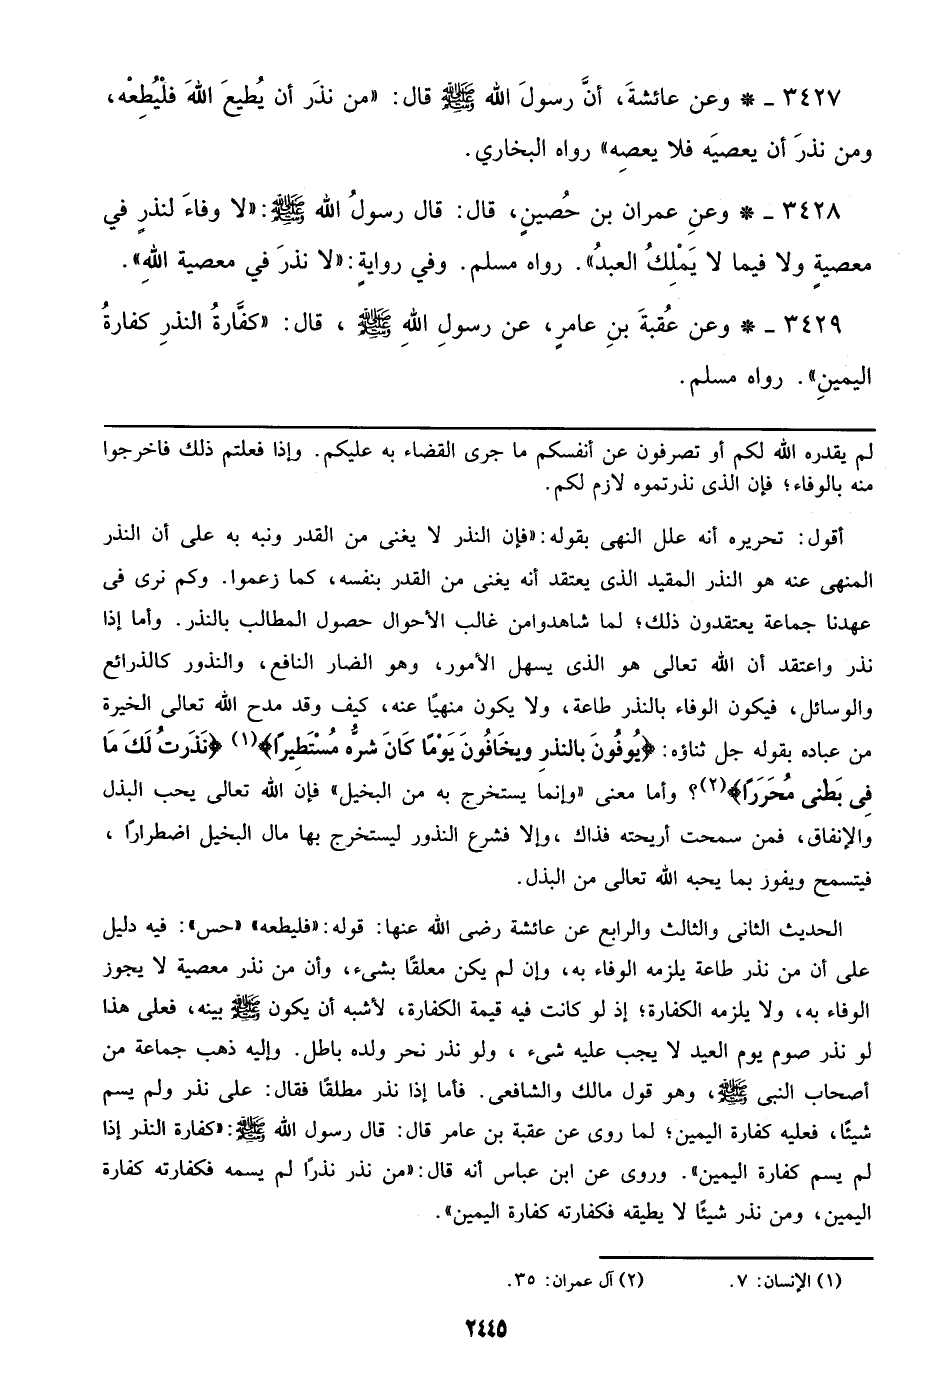 ٣٤٢٧ ـ * وعن عائشةَ، أنَّ رسولَ الله ﷺ قال: «من نذَر أن يُطيعَ اللهَ فلْيُطعْه،
ومن نذرَ أن يعصيَه فلا يعصِه» رواه البخاري.
٣٤٢٨ ـ * وعنِ عمران بن حُصينٍ، قال: قال رسولُ الله ﷺ:«لا وفاءَ لنذرٍ في
معصيةٍ ولا فيما لا يَمْلِكُ العبدُ». رواه مسلم. وفي روايةٍ:«لا نذرَ في معصية اللهِ».
٣٤٢٩ ـ * وعن عُقبةَ بنِ عامرٍ، عن رسولِ اللهِ ﷺ ، قال: «كفَّارةُ النذرِ كفارةُ
اليمينِ». رواه مسلم.
لم يقدره الله لكم أو تصرفون عن أنفسكم ما جرى القضاء به عليكم. وإذا فعلتم ذلك فاخرجوا
منه بالوفاء؛ فإن الذى نذرتموه لازم لكم.
أقول: تحريره أنه علل النهى بقوله:«فإن النذر لا يغنى من القدر ونبه به على أن النذر
المنهى عنه هو النذر المقيد الذى يعتقد أنه يغنى من القدر بنفسه، كما زعموا. وكم نرى فى
عهدنا جماعة يعتقدون ذلك؛ لما شاهدوامن غالب الأحوال حصول المطالب بالنذر. وأما إذا
نذر واعتقد أن الله تعالى هو الذى يسهل الأمور، وهو الضار النافع، والنذور كالذرائع
والوسائل، فيكون الوفاء بالنذر طاعة، ولا يكون منهيًا عنه، كيف وقد مدح الله تعالى الخيرة
من عباده بقوله جل ثناؤه: ﴿يُوفُونَ بالنذرِ ويخَافُونَ يَوْمًا كَانَ شرُّه مُسْتَطِيرًا﴾(١) ﴿نَذَرتُ لَكَ مَا
فِى بَطْنى مُحَرَرًا﴾(٢)؟ وأما معنى «وإنما يستخرج به من البخيل» فإن الله تعالى يحب البذل
والإنفاق، فمن سمحت أريحته فذاك ،وإلا فشرع النذور ليستخرج بها مال البخيل اضطرارًا ،
فيتسمح ويفوز بما يحبه الله تعالى من البذل.
الحديث الثانى والثالث والرابع عن عائشة رضى الله عنها: قوله:«فليطعه» «حس»: فيه دليل
على أن من نذر طاعة يلزمه الوفاء به، وإن لم يكن معلقًا بشىء، وأن من نذر معصية لا يجوز
الوفاء به، ولا يلزمه الكفارة؛ إذ لو كانت فيه قيمة الكفارة، لأشبه أن يكون ﷺ بينه، فعلى هذا
لو نذر صوم يوم العيد لا يجب عليه شىء ، ولو نذر نحر ولده باطل. وإليه ذهب جماعة من
أصحاب النبى ﷺ، وهو قول مالك والشافعى. فأما إذا نذر مطلقًا فقال: على نذر ولم يسم
شيئًا، فعليه كفارة اليمين؛ لما روى عن عقبة بن عامر قال: قال رسول الله ﷺ:«كفارة النذر إذا
لم يسم كفارة اليمين». وروى عن ابن عباس أنه قال:«من نذر نذرًا لم يسمه فكفارته كفارة
اليمين، ومن نذر شيئًا لا يطيقه فكفارته كفارة اليمين».
(١) الإنسان: ٧. (٢) آل عمران: ٣٥.
٢٤٤٥